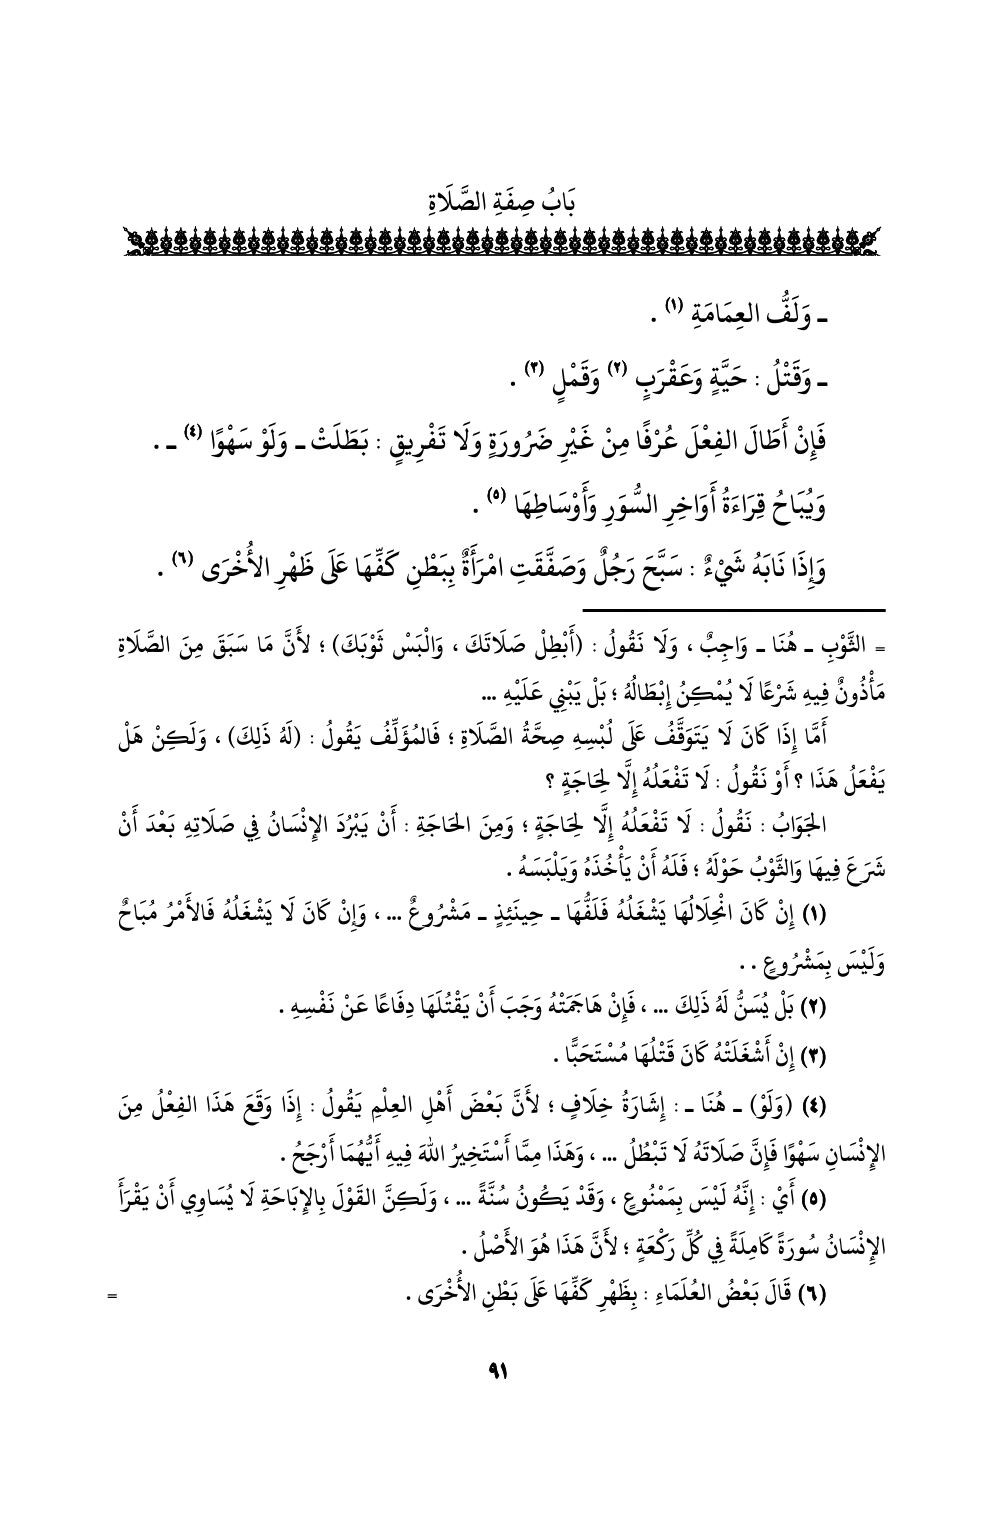 بَابُ صِفَةِ الصَّلَاةِ
ـ وَلَفُّ العِمَامَةِ (١) .
ـ وَقَتْلُ : حَيَّةٍ وَعَقْرَبٍ (٢) وَقَمْلٍ (٣) .
فَإِنْ أَطَالَ الفِعْلَ عُرْفًا مِنْ غَيْرِ ضَرُورَةٍ وَلَا تَفْرِيقٍ : بَطَلَتْ ـ وَلَوْ سَهْوًا (٤) ـ .
وَيُبَاحُ قِرَاءَةُ أَوَاخِرِ السُّوَرِ وَأَوْسَاطِهَا (٥) .
وَإِذَا نَابَهُ شَيْءٌ : سَبَّحَ رَجُلٌ وَصَفَّقَتِ امْرَأَةٌ بِبَطْنِ كَفِّهَا عَلَى ظَهْرِ الأُخْرَى (٦) .
= الثَّوْبِ ـ هُنَا ـ وَاجِبٌ ، وَلَا نَقُولُ : (أَبْطِلْ صَلَاتَكَ ، وَالْبَسْ ثَوْبَكَ) ؛ لأَنَّ مَا سَبَقَ مِنَ الصَّلَاةِ
مَأْذُونٌ فِيهِ شَرْعًا لَا يُمْكِنُ إِبْطَالُهُ ؛ بَلْ يَبْنِي عَلَيْهِ ...
أَمَّا إِذَا كَانَ لَا يَتَوَقَّفُ عَلَى لُبْسِهِ صِحَّةُ الصَّلَاةِ ؛ فَالمُؤَلِّفُ يَقُولُ : (لَهُ ذَلِكَ) ، وَلَكِنْ هَلْ
يَفْعَلُ هَذَا ؟ أَوْ نَقُولُ : لَا تَفْعَلُهُ إِلَّا لِحَاجَةٍ ؟
الجَوَابُ : نَقُولُ : لَا تَفْعَلُهُ إِلَّا لِحَاجَةٍ ؛ وَمِنَ الحَاجَةِ : أَنْ يَبْرُدَ الإِنْسَانُ فِي صَلَاتِهِ بَعْدَ أَنْ
شَرَعَ فِيهَا وَالثَّوْبُ حَوْلَهُ ؛ فَلَهُ أَنْ يَأْخُذَهُ وَيَلْبَسَهُ .
(١) إِنْ كَانَ انْحِلَالُهَا يَشْغَلُهُ فَلَفُّهَا ـ حِينَئِذٍ ـ مَشْرُوعٌ ... ، وَإِنْ كَانَ لَا يَشْغَلُهُ فَالأَمْرُ مُبَاحٌ
وَلَيْسَ بِمَشْرُوعٍ . .
(٢) بَلْ يُسَنُّ لَهُ ذَلِكَ ... ، فَإِنْ هَاجَمَتْهُ وَجَبَ أَنْ يَقْتُلَهَا دِفَاعًا عَنْ نَفْسِهِ .
(٣) إِنْ أَشْغَلَتْهُ كَانَ قَتْلُهَا مُسْتَحَبًّا .
(٤) (وَلَوْ) ـ هُنَا ـ : إِشَارَةُ خِلَافٍ ؛ لأَنَّ بَعْضَ أَهْلِ العِلْمِ يَقُولُ : إِذَا وَقَعَ هَذَا الفِعْلُ مِنَ
الإِنْسَانِ سَهْوًا فَإِنَّ صَلَاتَهُ لَا تَبْطُلُ ... ، وَهَذَا مِمَّا أَسْتَخِيرُ اللهَ فِيهِ أَيُّهُمَا أَرْجَحُ .
(٥) أَيْ : إِنَّهُ لَيْسَ بِمَمْنُوعٍ ، وَقَدْ يَكُونُ سُنَّةً ... ، وَلَكِنَّ القَوْلَ بِالإِبَاحَةِ لَا يُسَاوِي أَنْ يَقْرَأَ
الإِنْسَانُ سُورَةً كَامِلَةً فِي كُلِّ رَكْعَةٍ ؛ لأَنَّ هَذَا هُوَ الأَصْلُ .
(٦) قَالَ بَعْضُ العُلَمَاءِ : بِظَهْرِ كَفِّهَا عَلَى بَطْنِ الأُخْرَى . =
٩١